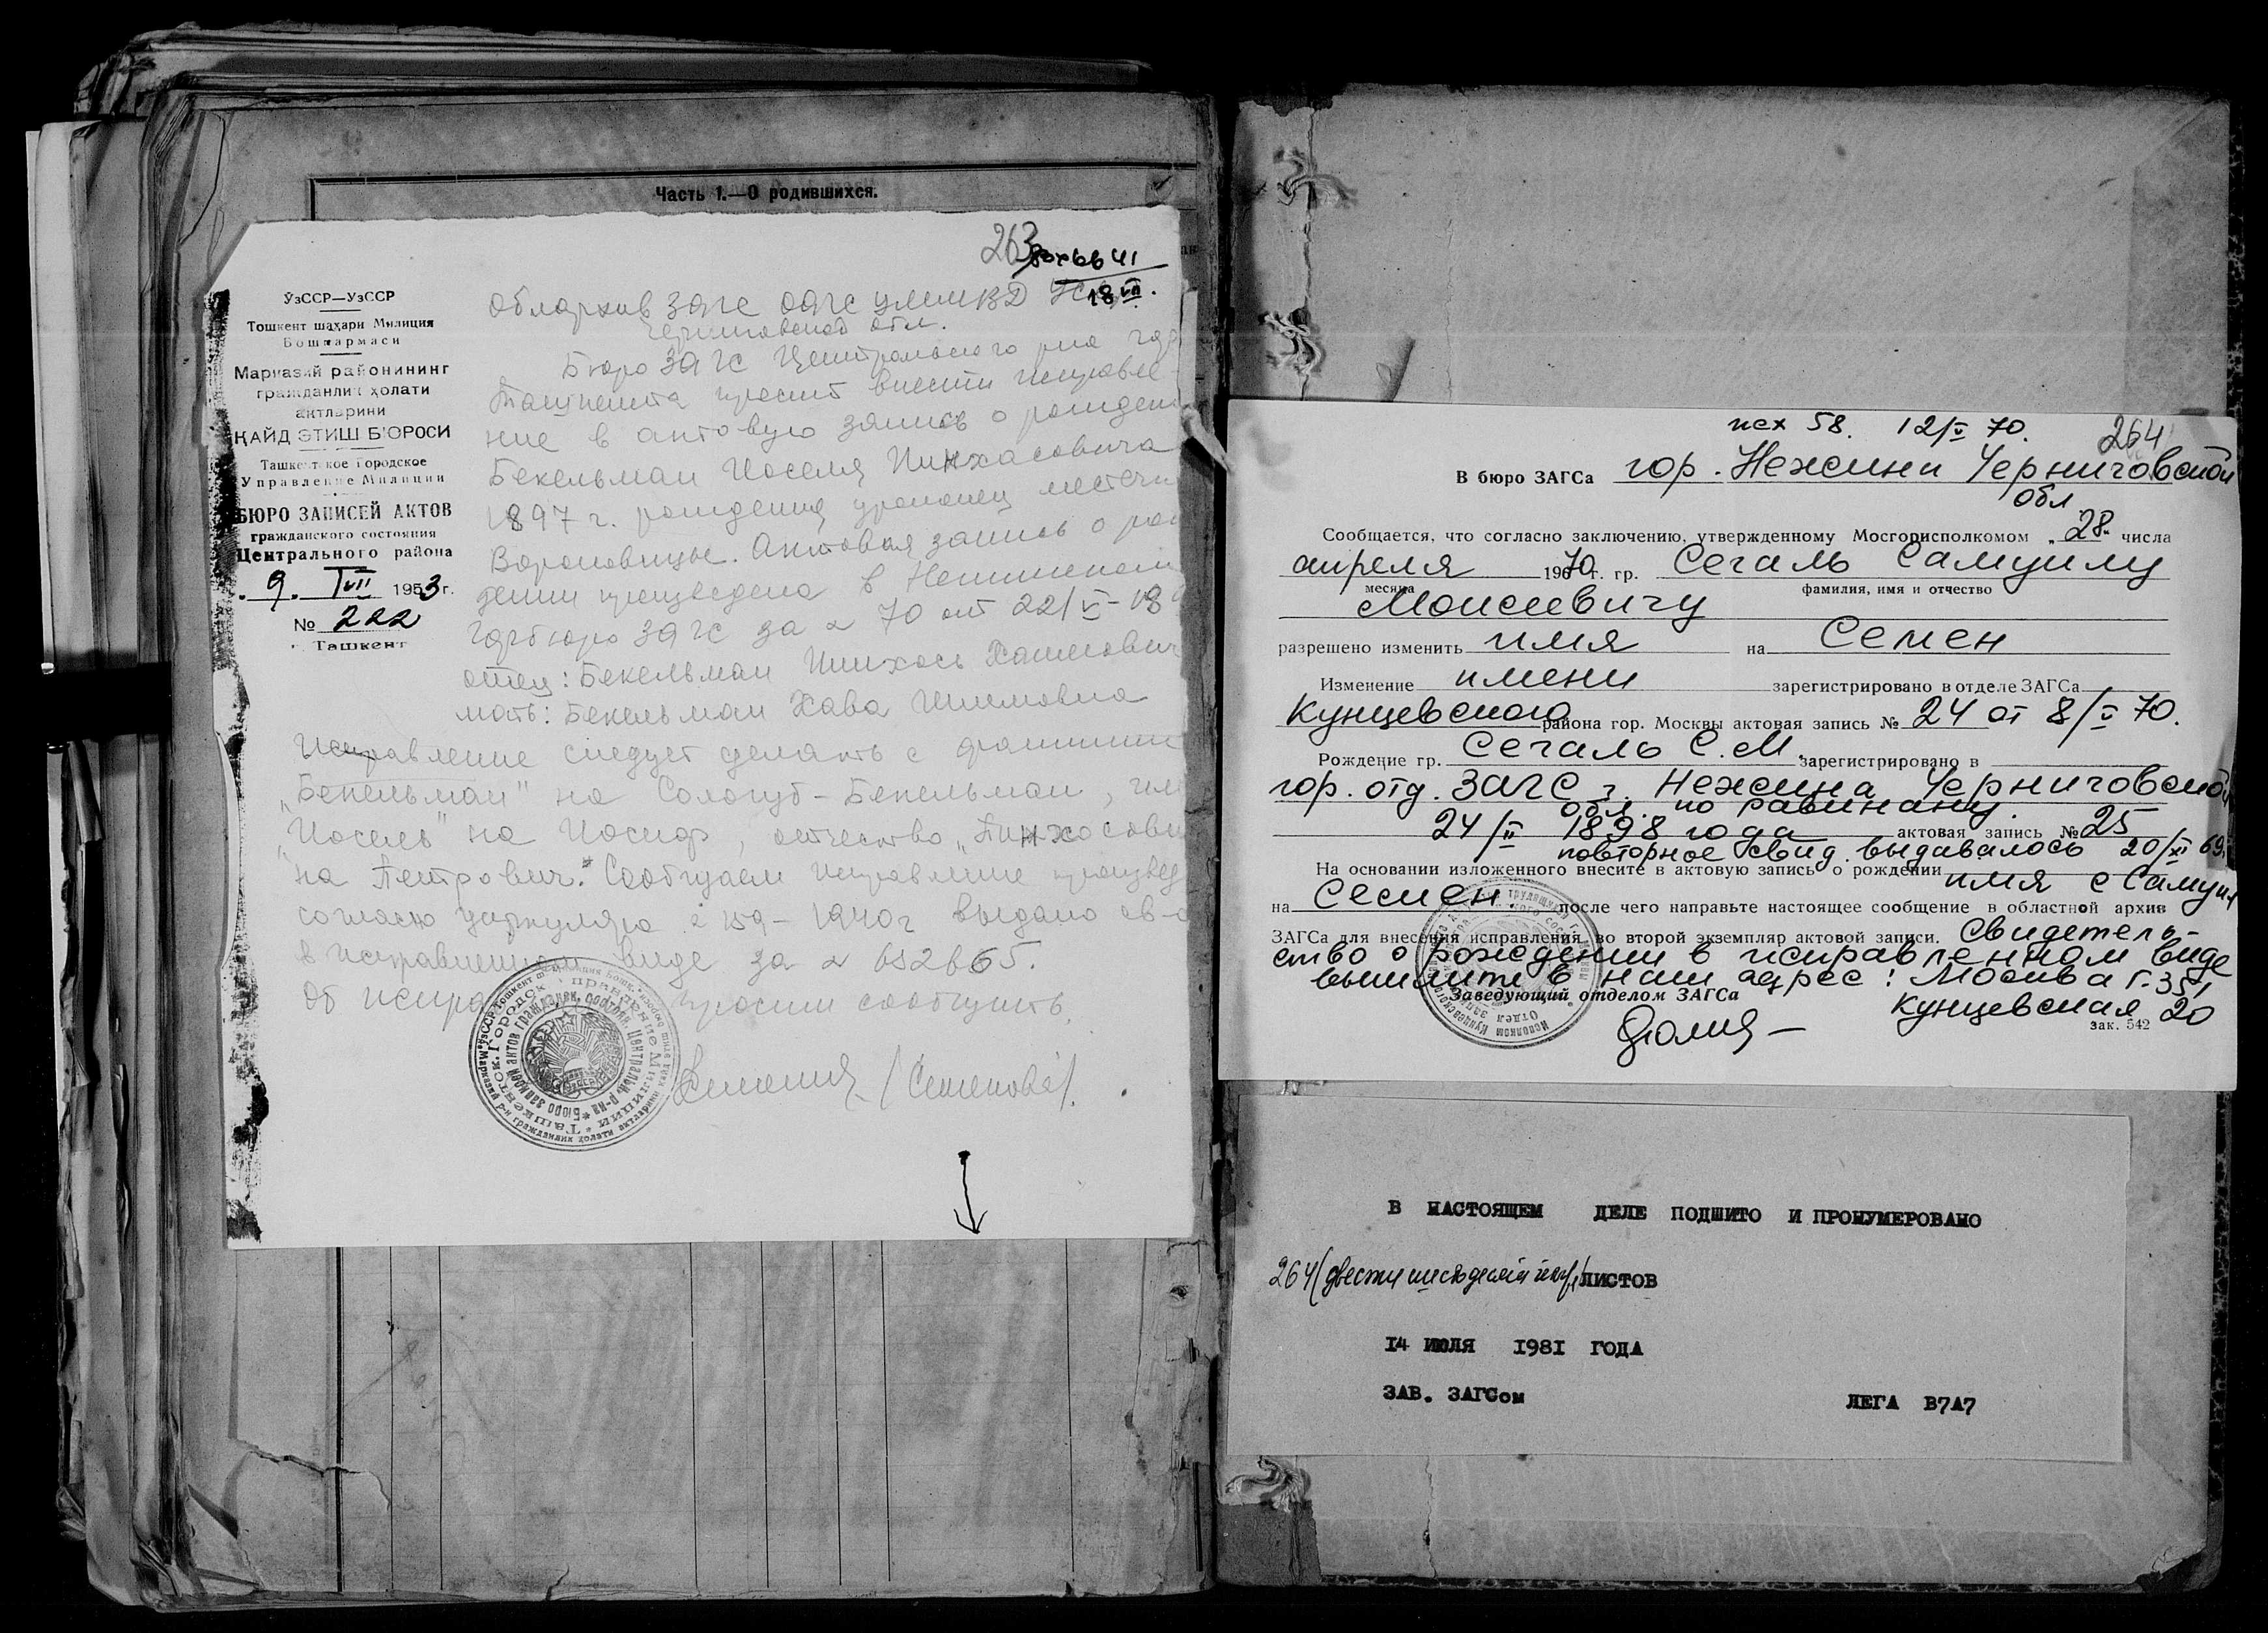 Часть 1.—О родившихся.
263
18 VII.
ЎзССР—УзССР
Тошкент шаҳари Милиция
Бошқармаси
Марказий районининг
гражданлик ҳолати
актларини
ҚАЙД ЭТИШ БЮРОСИ
Ташкентское Городское
Управление Милиции
БЮРО ЗАПИСЕЙ АКТОВ
гражданского состояния
Центрального района
9. VII 1953 г.
№ 222
Ташкент
Облархив ЗАГС ОАГС
Черниговской обл.
Бюро ЗАГС Центрального р-на гор
Ташкента просит внести исправле-
ние в актовую запись о рожден
Бекельман Иоселя Пинхасовича
1897 г. рождения уроженец местечк
Вороновицы. Актовая запись о рож
дении произведена в Неженском
горбюро ЗАГС за № 70 от 22/VI-18
отец: Бекельман Пинхось
мать: Бекельман Хава Шлемовна
Исправление следует сделать с фамилии
„Бекельман" на Сологуб-Бекельман, имя
„Иосель" на Иосиф, отчество „Пинхасови
на Петрович." Сообщаем исправление произвед
согласно циркуляра № 159-1940г выдано св-о
в исправленном виде за № 652665.
Об испра просим сообщить.
/Семенова/.
исх 58. 12/V 70.
264
В бюро ЗАГСа гор. Нежина Черниговской
обл.
Сообщается, что согласно заключению, утвержденному Мосгорисполкомом „28" числа
апреля 1970 г. гр. Сегаль Самуилу
месяца фамилия, имя и отчество
Моисеевичу
разрешено изменить имя на Семен
Изменение имени зарегистрировано в отделе ЗАГСа
Кунцевского района гор. Москвы актовая запись № 24 от 8/V 70.
Рождение гр. Сегаль С.М. зарегистрировано в
гор. отд. ЗАГС г. Нежина Черниговской
обл. по равинану
24/II 1898 года актовая запись № 25
повторное свид. выдавалось 20/XI 69.
На основании изложенного внесите в актовую запись о рождении имя с Самуил
на Семен. после чего направьте настоящее сообщение в областной архив
ЗАГСа для внесения исправления во второй экземпляр актовой записи. Свидетель-
ство о рождении в исправленном виде
вышлите в наш адрес: Москва Г-351
Заведующий отделом ЗАГСа
Кунцевская 20
зак. 542
В НАСТОЯЩЕМ ДЕЛЕ ПОДШИТО И ПРОНУМЕРОВАНО
264 (двести шестьдесят четыре) ЛИСТОВ
14 ИЮЛЯ 1981 ГОДА
ЗАВ. ЗАГСом ЛЕГА В7А7